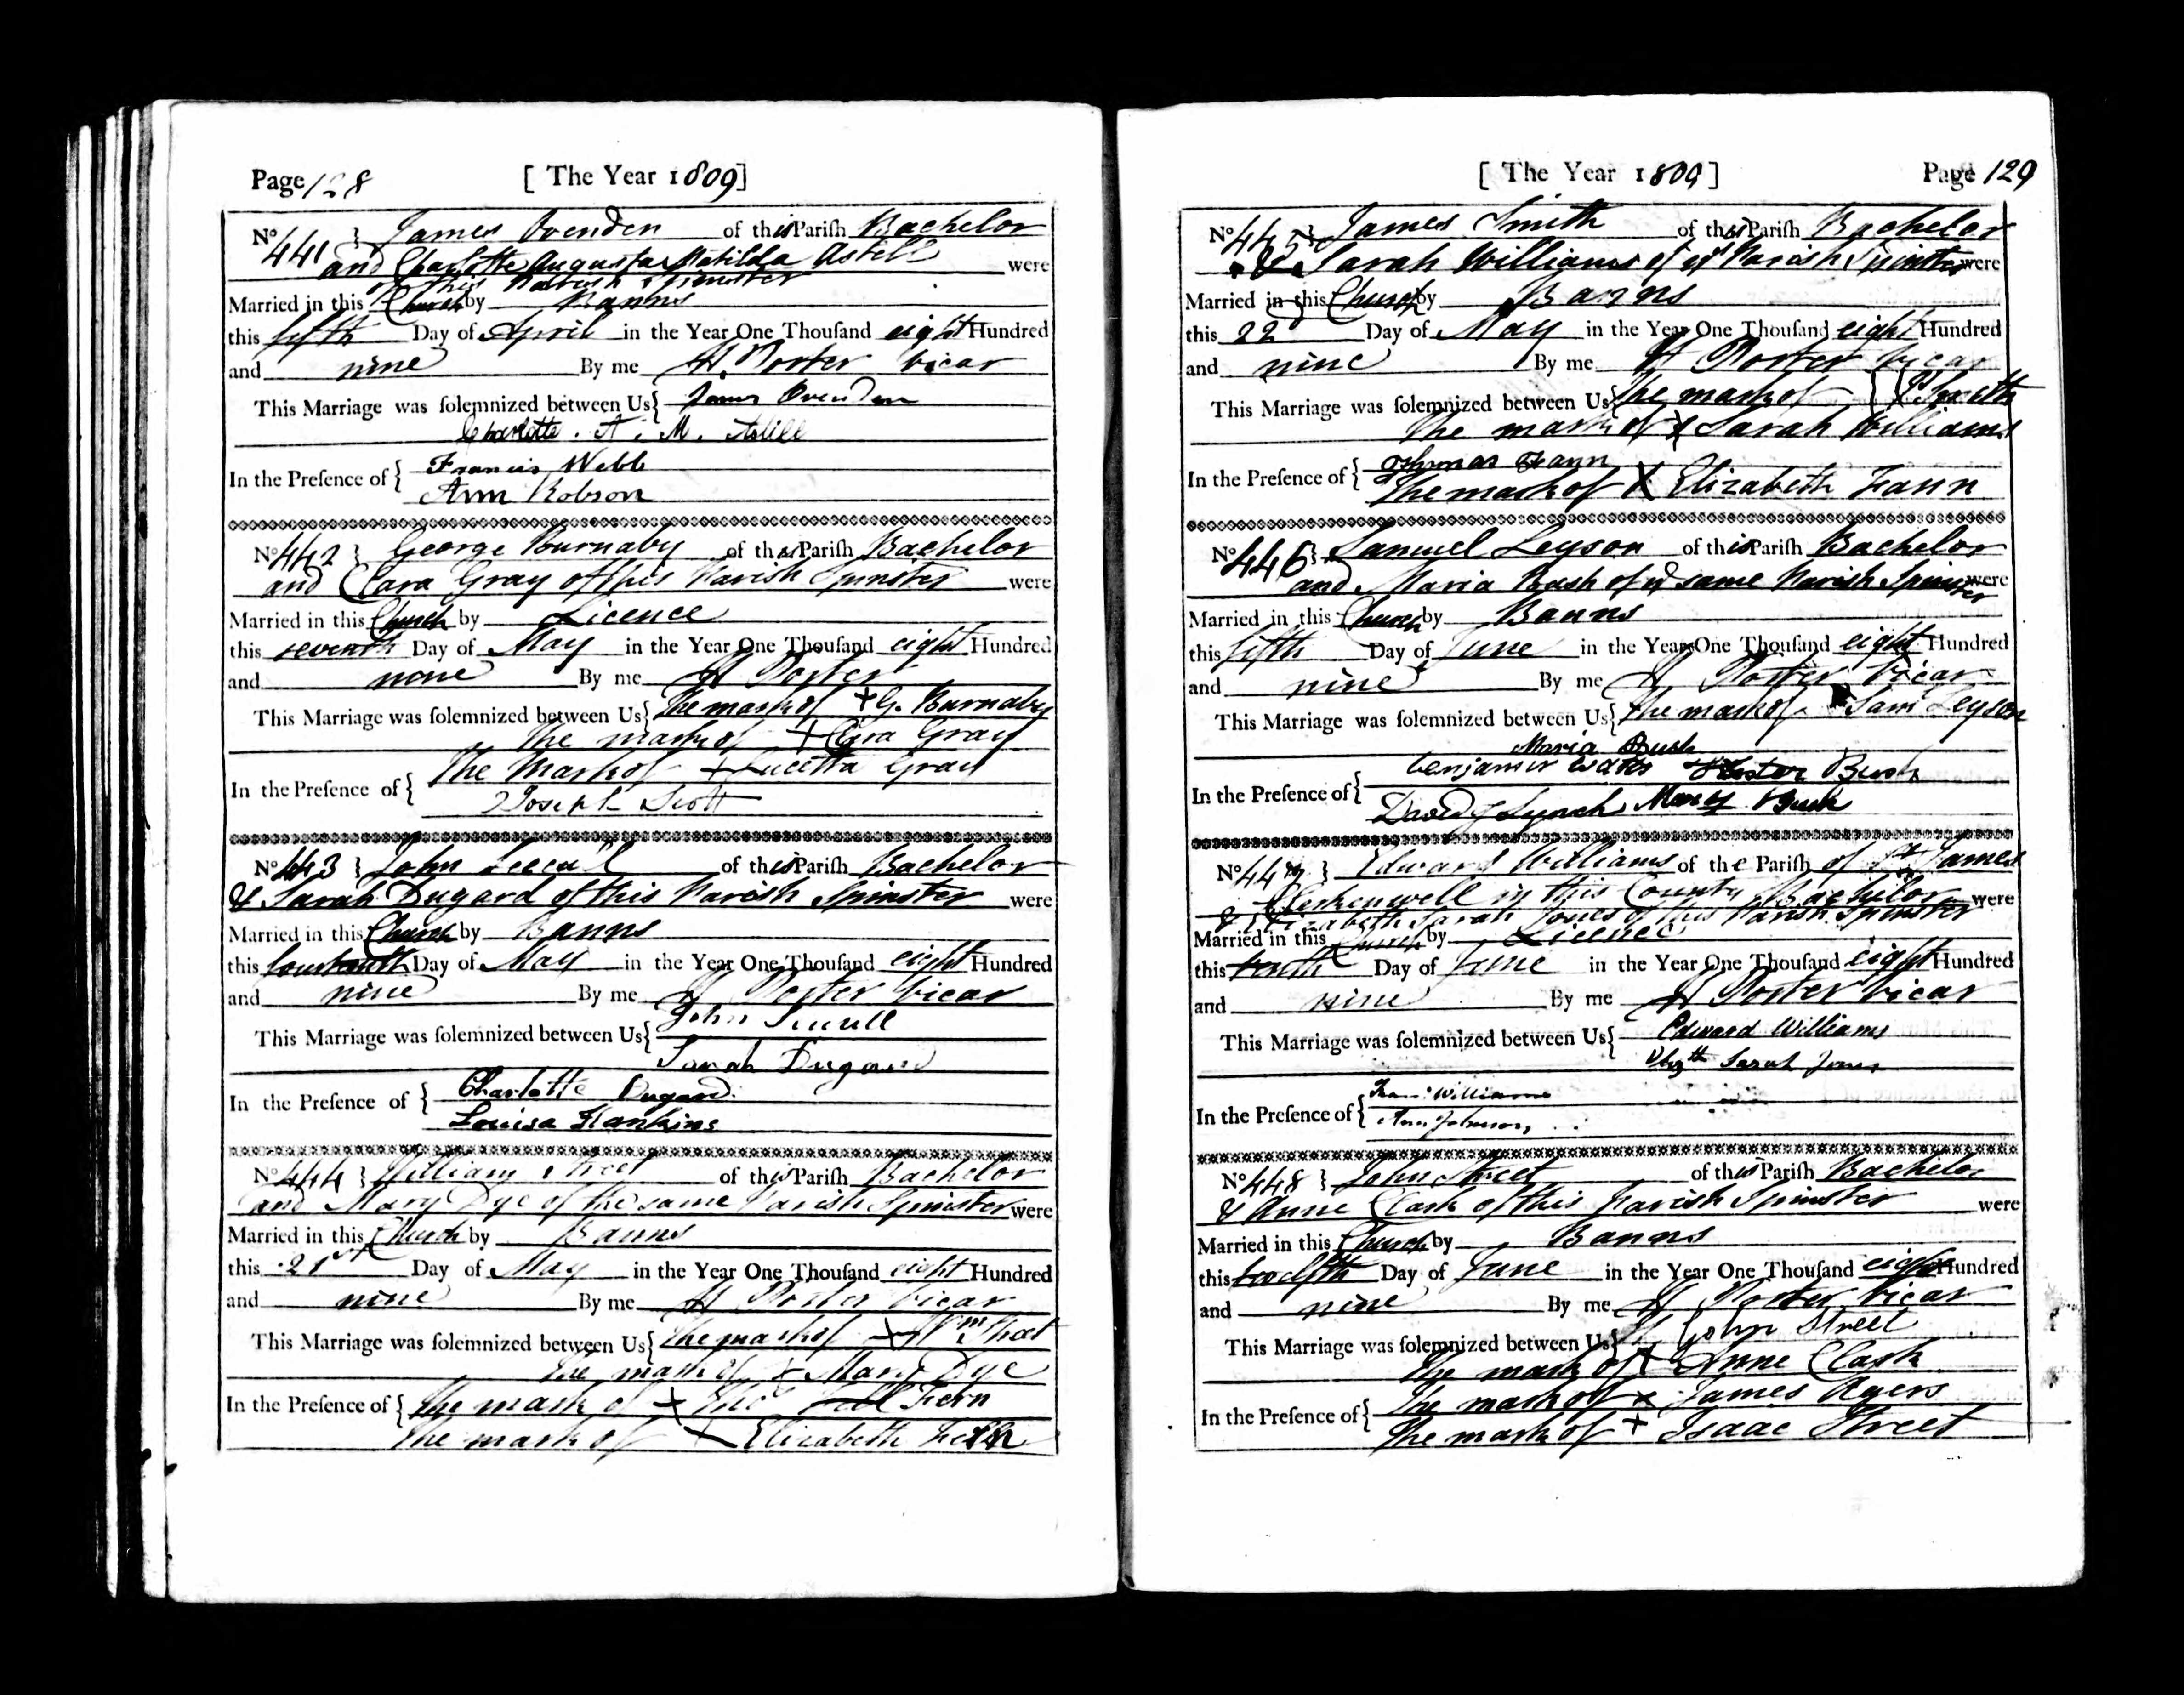 Page 128 [ The Year 1809]
No 441 } James Ovenden of this Parish Bachelor
and Charlotte Augusta Matilda Astell were
of this Parish Spinster
Married in this Church by Banns
this fifth Day of April in the Year One Thousand eight Hundred
and nine By me H. Porter Vicar
This Marriage was solemnized between Us { James Ovenden
Charlotte . A . M. Astell
In the Presence of { Francis Webb
Ann Robson
No 442 } George Burnaby of this Parish Bachelor
and Clara Gray of this Parish Spinster were
Married in this Church by Licence
this seventh Day of May in the Year One Thousand eight Hundred
and nine By me H Porter
This Marriage was solemnized between Us { The mark of + G. Burnaby
The mark of + Clara Gray
In the Presence of { The Mark of + Lucetta Gray
Joseph Scott
No 443 } John of this Parish Bachelor
& Sarah Dugard of this Parish Spinster were
Married in this Church by Banns
this fourteenth Day of May in the Year One Thousand eight Hundred
and nine By me H Porter Vicar
This Marriage was solemnized between Us { John
Sarah Dugard
In the Presence of { Charlotte Dugard
Louisa Hankins
No 444 } William Street of this Parish Bachelor
and Mary Dye of the same Parish Spinster were
Married in this Church by Banns
this 21st Day of May in the Year One Thousand eight Hundred
and nine By me H Porter Vicar
This Marriage was solemnized between Us { The mark of + Wm Street
The mark of + Mary Dye
In the Presence of { The mark of + Fern
The mark of + Elizabeth
[ The Year 1809 ] Page 129
No 445 } James Smith of this Parish Bachelor
& Sarah Williams of ys Parish Spinster were
Married in this Church by Banns
this 22 Day of May in the Year One Thousand eight Hundred
and nine By me H Porter Vicar
This Marriage was solemnized between Us { The mark of Js Smith
The mark of + Sarah Williams
In the Presence of { Thomas Fann
The mark of X Elizabeth Fann
No 446 } Samuel Leyson of this Parish Bachelor
and Maria Bush of ye same Parish Spinster were
Married in this Church by Banns
this fifth Day of June in the Year One Thousand eight Hundred
and nine By me H Porter Vicar
This Marriage was solemnized between Us { The mark of Sam Leyson
Maria Bush
In the Presence of { Benjamin Hester Bush
David Lynch Mary Bush
No 447 } Edward Williams of the Parish of St James
Clerkenwell in this County Bachelor were
& Elizabeth Sarah Jones of this Parish Spinster
Married in this Church by Licence
this tenth Day of June in the Year One Thousand eight Hundred
and nine By me H Porter Vicar
This Marriage was solemnized between Us { Edward Williams
Elizth Sarah Jones
In the Presence of { Williams
Ann Johnson
No 448 } John Street of this Parish Bachelor
& Anne Clark of this Parish Spinster were
Married in this Church by Banns
this twelfth Day of June in the Year One Thousand eight Hundred
and nine By me H Porter Vicar
This Marriage was solemnized between Us { John Street
The mark of + Anne Clark
In the Presence of { The mark of x James Ayers
The mark of + Isaac Street